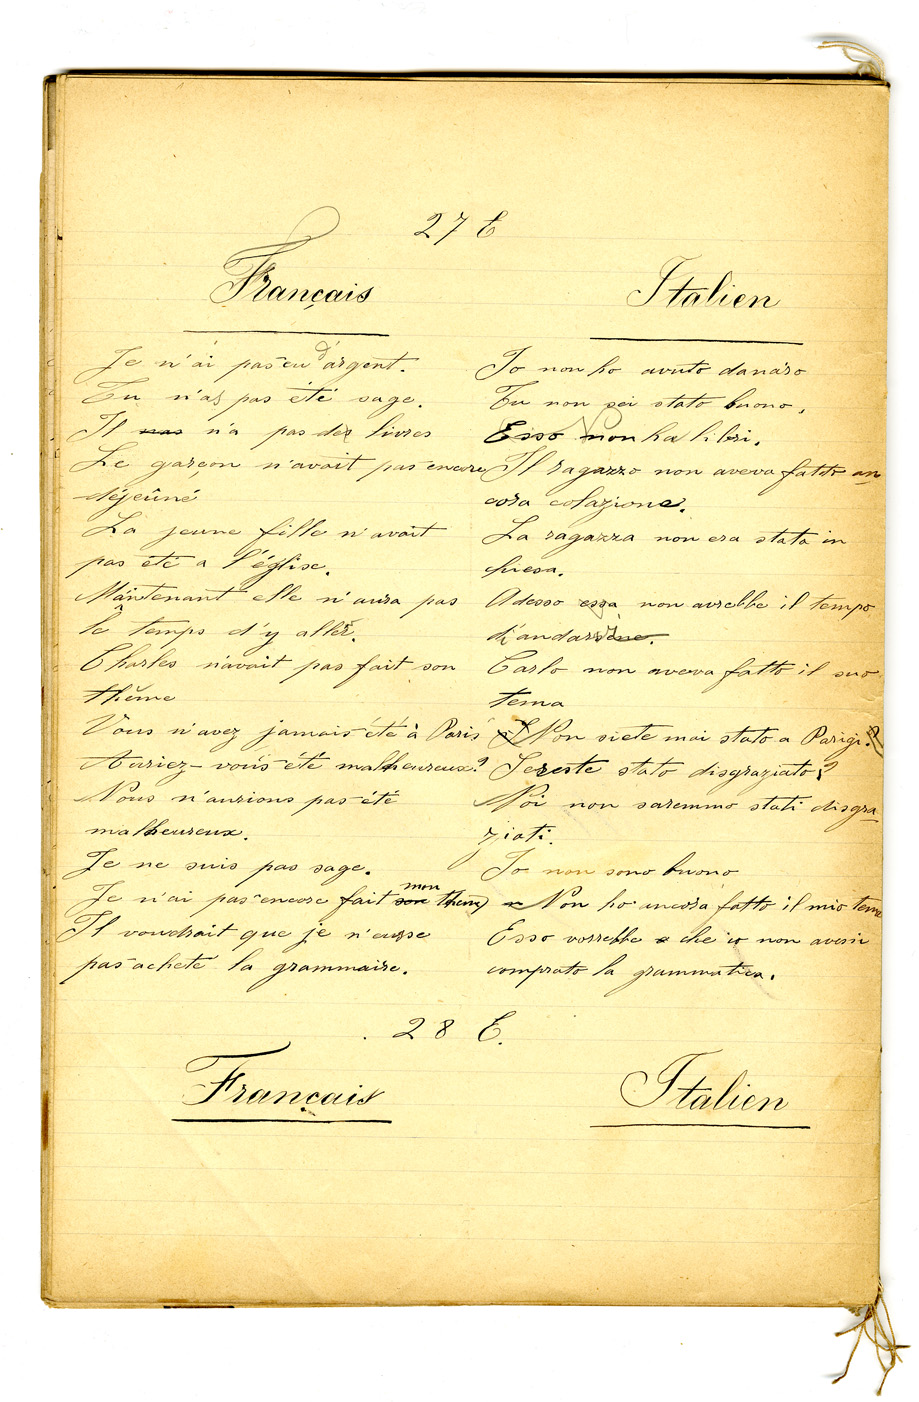 27 E
Français
Je n'ai pas eu d'argent.
Tu n'as pas été sage.
Il nas n'a pas des livres
Le garçon n'avait pas encore
déjeûné
La jeune fille n'avait
pas été a l'église.
Maintenant elle n'aura pas
le temps d'y aller.
Charles n'avait pas fait son
thême
Vous n'avez jamais été à Paris
Auriez-vous été malheureux?
Nous n'aurions pas été
malheureux.
Je ne suis pas sage.
Je n'ai pas encore fait son mon theme
Il voudrait que je n'eusse
pas acheté la grammaire.
Italien
Io non ho avuto danaro
Tu non sei stato buono.
Esso non ha libri.
Il ragazzo non aveva fatto an
cora colazione.
La ragazza non era stata in
chiesa.
Adesso essa non avrebbe il tempo
d'andar
Carlo non aveva fatto il suo
tema
Non siete mai stato a Parigi?
Sereste stato disgraziato?
Noi non saremmo stati disgra
ziati.
Io non sono buono
Non ho ancora fatto il mio tema
Esso vorrebbe che io non avessi
comprato la grammatica.
28 E.
Français
Italien